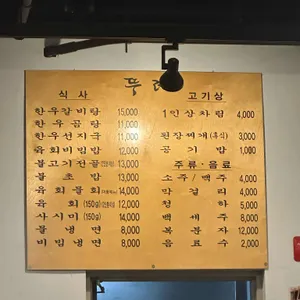 뚜
식 사
한우갈비탕 15,000
한 우 곰 탕 11,000
한우선지국 11,000
육회비빔밥 12,000
불고기전골 13,000
불 초 밥 13,000
육 회 물 회 14,000
육 회 (150g) 12,000
사 시 미 (150g) 14,000
물 냉 면 8,000
비 빔 냉 면 8,000
고기상
1인상차림 4,000
된장찌개(후식) 3,000
공 기 밥 1,000
주류·음료
소주/맥주 4,000
막 걸 리 4,000
청 하 5,000
백 세 주 8,000
복 분 자 12,000
음 료 수 2,000